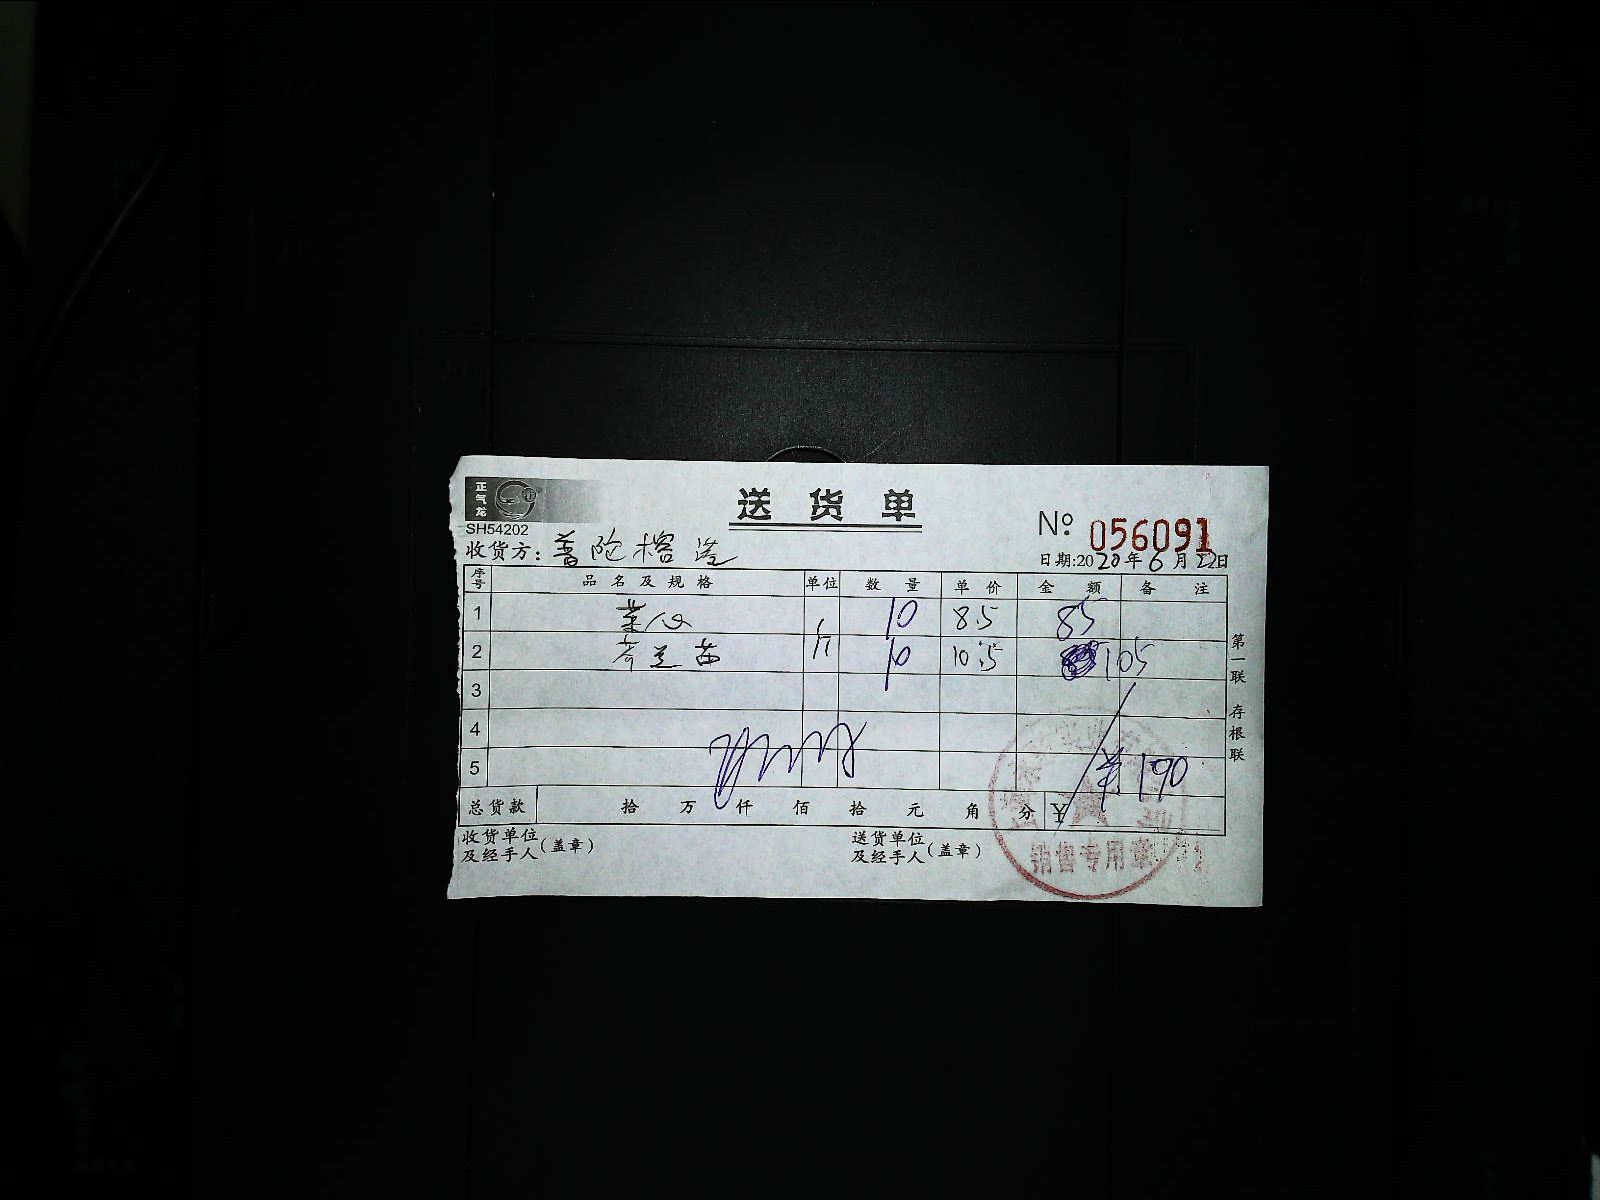 正气龙
送货单
SH54202
№ 056091
收货方：普陀榕港
日期:2020年6月22日
序号 品名及规格 单位 数量 单价 金额 备注
1 菜心 斤 10 8.5 85
2 芥兰苗 10 10.5 105
3
4
5 190
总货款 拾 万 仟 佰 拾 元 角 分 ¥
收货单位及经手人(盖章)
送货单位及经手人(盖章)
销售专用章
第一联 存根联